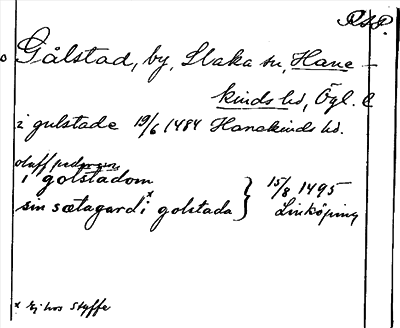 RAP.
Gålstad, by, Slaka sn, Hane-
kinds hd, Ögl. C
i gulstade 19/6 1484 Hanekinds hd.
olaff pedersson
i golstadom
sin sætagard i x golstada } 15/8 1495
Linköping
x Ej hos Styffe